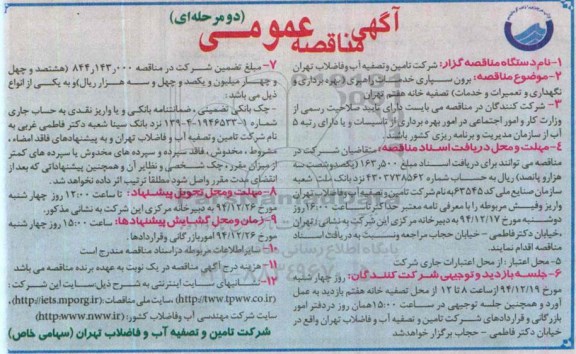 آگهی مناقصه عمومی
(دو مرحله‌ای)
۱-نام دستگاه مناقصه گزار: شرکت تامین وتصفیه آب وفاضلاب تهران
۲-موضوع مناقصه: برون سپاری خدمات بهره برداری و
نگهداری و تعمیرات و خدمات) تصفیه خانه هفتم تهران
۳- شرکت کنندگان در مناقصه می بایست دارای تایید صلاحیت رسمی از
وزارت کار و امور اجتماعی در امور بهره برداری از تاسیسات و یا دارای رتبه ۵
آب از سازمان مدیریت و برنامه ریزی کشور باشند.
۴-مهلت و محل دریافت اسناد مناقصه: متقاضیان شرکت در
مناقصه می توانند برای دریافت اسناد مبلغ ۱۶۳٫۵۰۰ (یکصد وشصت وسه
هزار و پانصد) ریال به حساب شماره ۴۳۰۳۷۳۸۵۶۲ نزد بانک ملت شعبه
صنایع ملی کد ۶۳۵۴۵ به نام شرکت تامین وتصفیه آب وفاضلاب تهران
واریز وفیش مربوطه را با معرفی نامه معتبر حداکثر تا ساعت ۱۶:۰۰ روز
دوشنبه مورخ ۹۴/۱۲/۱۷ به دبیرخانه مرکزی این شرکت به نشانی: تهران
،خیابان دکتر فاطمی - خیابان حجاب مراجعه ونسبت به دریافت اسناد
مناقصه اقدام نمایند.
۵- محل اعتبار: از محل اعتبارات جاری شرکت
۶-جلسه بازدید و توجیهی شرکت کنندگان: روز چهار شنبه
مورخ ۹۴/۱۲/۱۹ از ساعت ۸ تا ۱۲ از محل تصفیه خانه هفتم بازدید به عمل
آورد و همچنین جلسه توجیهی در ساعت ۱۵:۰۰ همان روز در دفتر امور
بازرگانی و قراردادهای شرکت تامین و تصفیه آب و فاضلاب تهران واقع در
خیابان دکتر فاطمی - حجاب برگزار خواهدشد
۷- مبلغ تضمین شرکت در مناقصه ۸۴۴٫۱۴۳٫۰۰۰ (هشتصد و چهل
و چهار میلیون و یکصد و چهل و سه هزار ریال)و به یکی از انواع
ذیل می باشد:
- چک بانکی تضمینی ، ضمانتنامه بانکی و یا واریز نقدی به حساب جاری
شماره ۱-۱۹۴۶۵۳۳-۴-۱۳۹ نزد بانک سینا شعبه دکتر فاطمی غربی به
نام شرکت تامین و تصفیه آب و فاضلاب تهران و به پیشنهادهای فاقد امضاء،
مشروط ، مخدوش ، فاقد سپرده و سپرده های مخدوش یا سپرده های کمتر
از میزان مقرر، چک شخصی و نظایر آن و همچنین پیشنهاداتی که بعد از
انقضای مدت مقرر واصل شود مطلقا ترتیب اثر داده نخواهد شد.
۸-مهلت و محل تحویل پیشنهاد: تا ساعت ۱۲:۰۰ روز چهار شنبه
۹۴/۱۲/۲۶ به دبیرخانه مرکزی این شرکت به نشانی مذکور.
۹- زمان و محل گشایش پیشنهادها: ساعت ۱۵:۰۰ روز چهار شنبه
مورخ ۹۴/۱۲/۲۶ امور بازرگانی وقراردادها.
۱۰- سایر اطلاعات مربوطه در اسناد مناقصه مندرج است
۱۱-هزینه درج آگهی مناقصه در یک نوبت به عهده برنده مناقصه می باشد
۱۲- سایتهای اینترنتی به شرح ذیل:سایت این شرکت
(http://tww.tpww.co.ir) سایت ملی مناقصات (http://iets.mporg.ir)،
سایت شرکت مهندسی آب وفاضلاب کشور (http:www.nww.ir)
شرکت تامین و تصفیه آب و فاضلاب تهران (سهامی خاص)